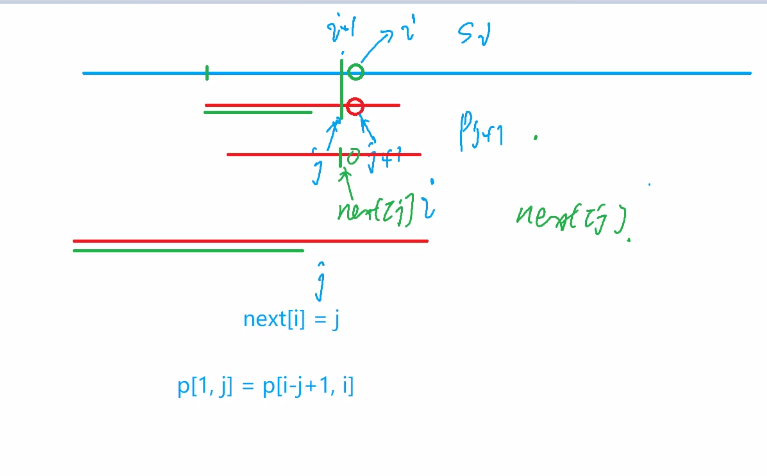 i-1
i
S[i]
P[j+1]
j
j+1
next[j]
i
next[j]
j
next[i] = j
p[1, j] = p[i-j+1, i]